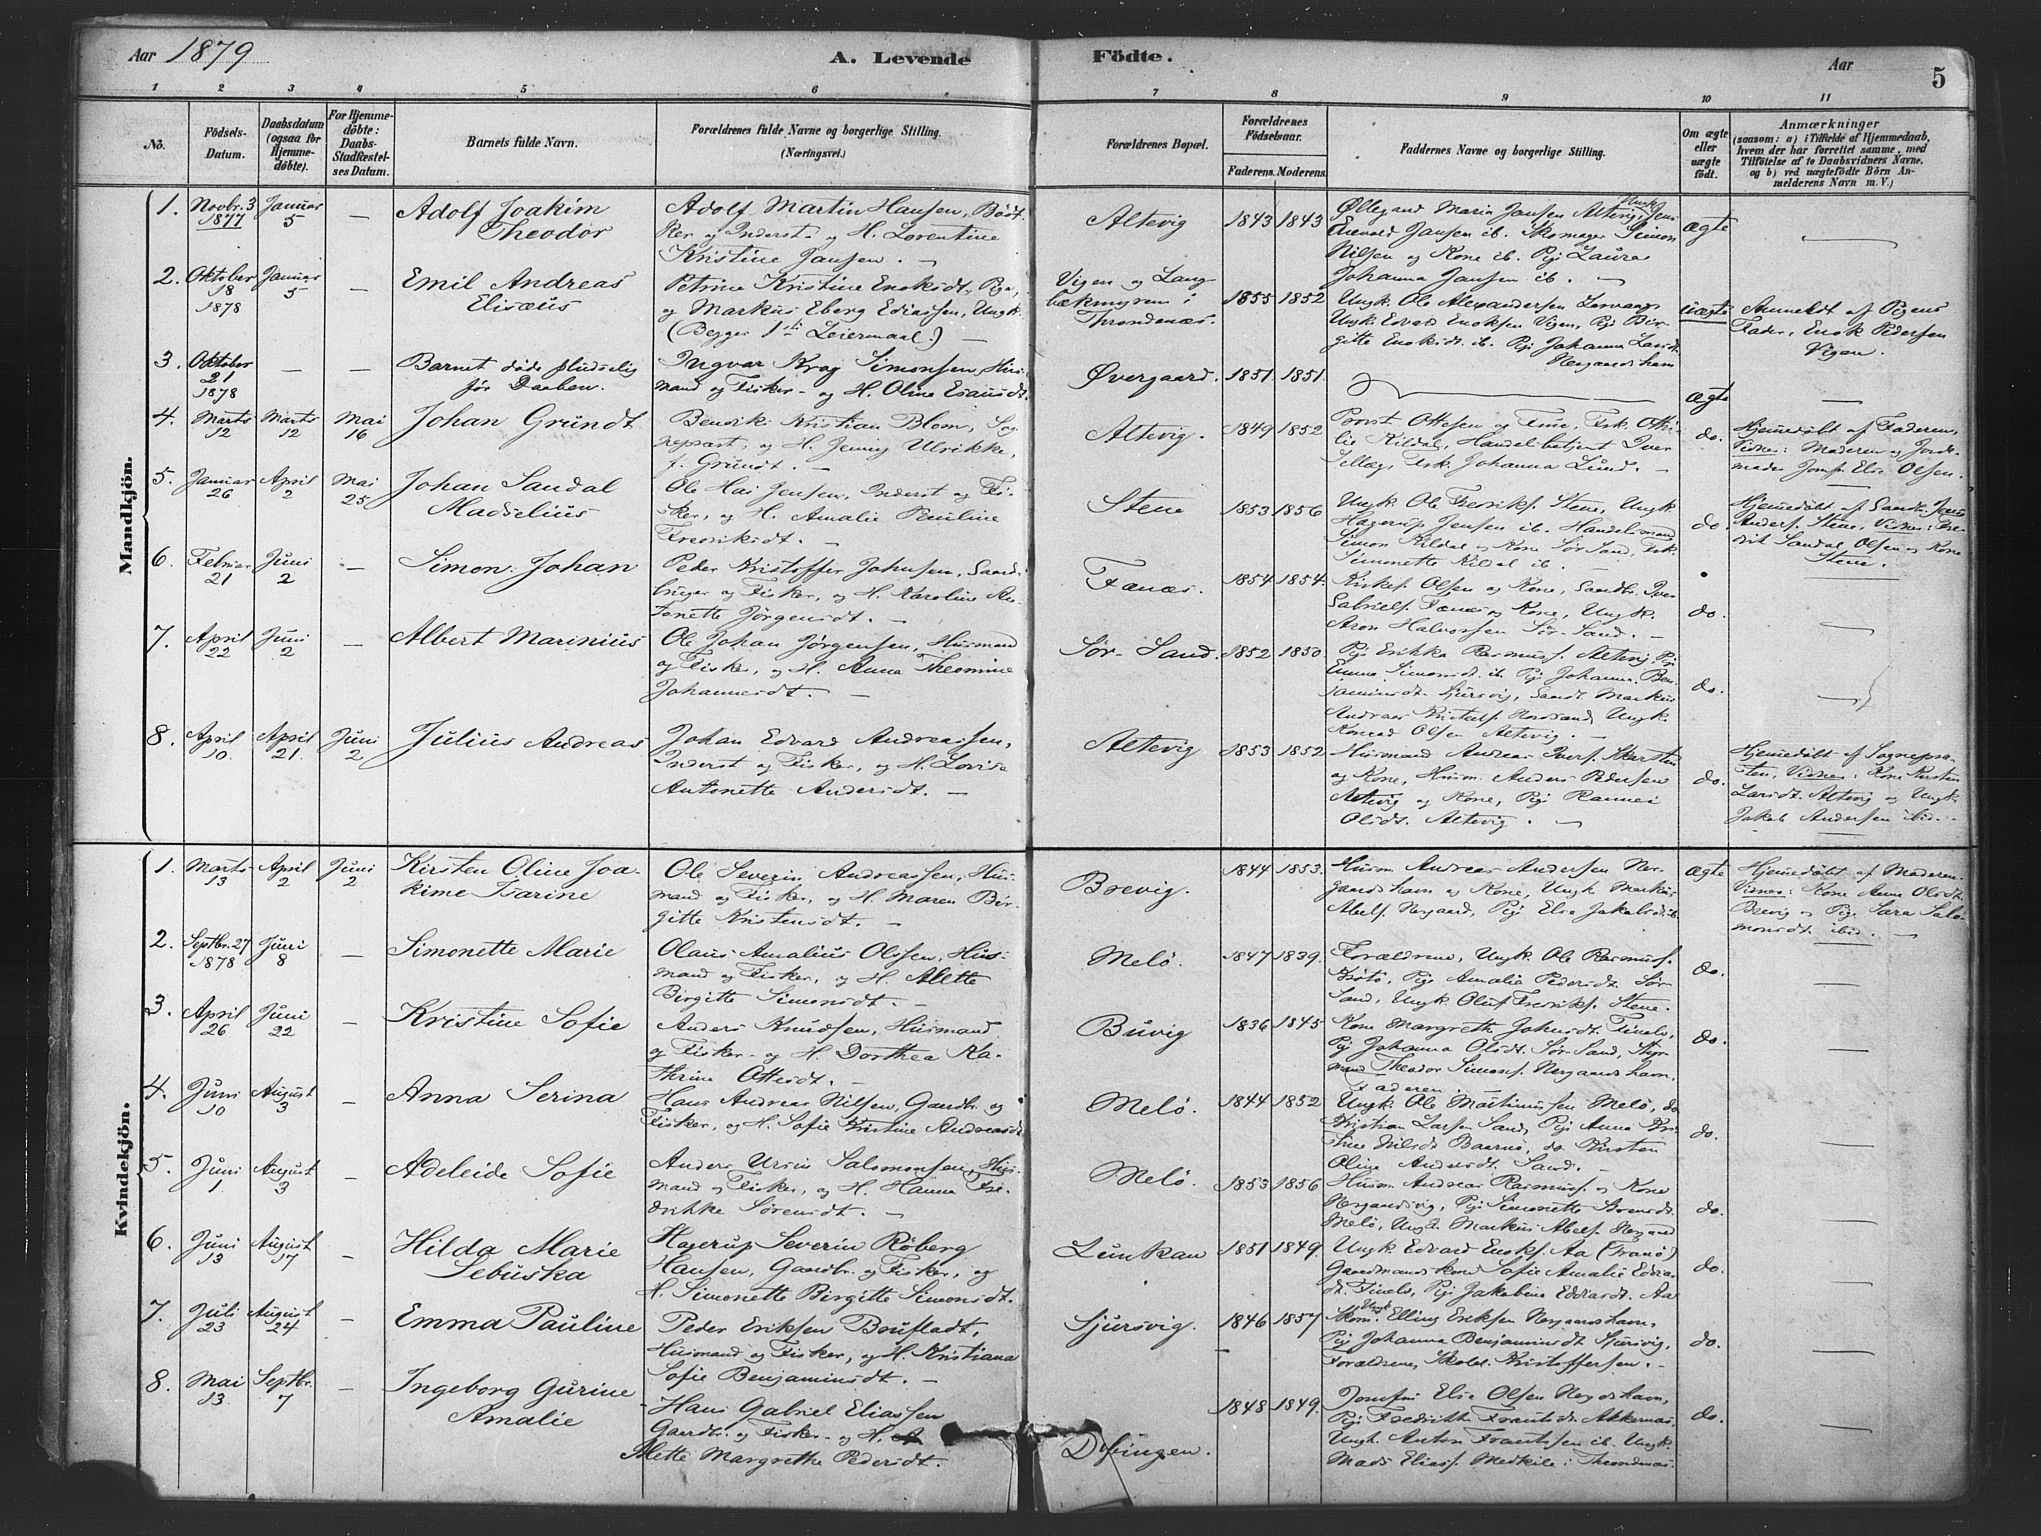 Aar 1879
A. Levende Födte.
Aar
5
1 2 3 4 5 6 7 8 9 10 11
No.
Födsels-
Datum.
Daabsdatum
(ogsaa for
Hjemme-
döbte).
For Hjemme-
döbte:
Daabs-
Stadfæstel-
ses Datum.
Barnets fulde Navn.
Forældrenes fulde Navne og borgerlige Stilling.
(Næringsvei.)
Forældrenes Bopæl.
Forældrenes
Födselsaar.
Faderens. Moderens.
Faddernes Navne og borgerlige Stilling.
Om ægte
eller
uægte
födt.
Anmærkninger
(saasom: a) i Tilfælde af Hjemmedaab,
hvem der har forrettet samme, med
Tilföielse af to Daabsvidners Navne,
og b) ved uægtefödte Börn An-
melderens Navn m. V.)
Mandkjön.
1. Novbr. 3 1877
Januar 5
—
Adolf Joakim
Theodor
Adolf Martin Hansen, Bød-
ker og Inderst og H. Lorentine
Kristine Jansen. —
Altevig
1843 1843
Øllegaard Maria Jansen Altevig,
Enevold Jansen ib. Skomager Simon
Nilsen og Kone ib. Pige Laura
Johanna Jansen ib. —
ægte
—
2. Oktober 18 1878
Januar 5
—
Emil Andreas
Elisæus
Petrine Kristine Enoksdt. Pige,
og Markus Eberg Ediassen, Ungk.
(Begges 1ste Leiermaal.) —
Vigen og Lang-
bækmyren i
Throndenæs.
1855 1852
Ungk. Ole Alexandersen
Ungk. Edvard Enoksen Vigen, Pige Bir-
gitte Enoksdt. ib. Pige Johanna
Nergaardshavn
uægte
Anmeldt af Pigens
Fader, Enok Pedersen
Vigen.
3. Oktober 21 1878
— —
Barnet døde pludselig
før Daaben.
Ingvar Krag Simonsen, Hus-
mand og Fisker og H. Oline Esausdt.
Øvergaard.
1851 1851.
ægte
—
4. Marts 12
Marts 12
Mai 16
Johan Grundt
Benoni Kristian Blom, Sog-
nepræst, og H. Jenny Ulrikke,
f. Grundt. —
Altevig.
1849 1852
Provst Ottesen og Frue, Frk. Otti-
lie Kildal, Handelsbetjent Iver
Frk. Johanna Lund. —
do.
Hjemmedøbt af Faderen,
Vidner: Moderen og Jorde-
moder Jomfr. Else Olsen.
5. Januar 26
April 2
Mai 25
Johan Sandal
Maddelius
Ole Hai Jensen, Inderst og Fi-
sker, og H. Amalie Pauline
Fredriksdt. —
Stene
1853 1856
Ungk. Ole Fredriks. Stene, Ungk.
Hagerup Jensen ib. Handelsmand
Simon Kildal og Kone Sør-Sand, Frk.
Simonette Kildal ib. —
do.
Hjemmedøbt af Gaardbr. Jens
Anders. Stene, Vidner: Fre-
drik Sandal Olsen og Kone
Stene.
6. Februar 21
Juni 2
—
Simon Johan
Peder Kristoffer Johnsen, Gaard-
bruger og Fisker, og H. Karoline An-
tonette Jørgensdt. —
Fanæs.
1854 1854.
Olsen og Kone, Gaardbr. Iver
Gabriels. Fanæs og Kone, Ungk.
Aron Halvorsen Sør-Sand. —
do.
—
7. April 22
Juni 2
—
Albert Marinius
Ole Johan Jørgensen, Husmand
og Fisker, og H. Anna Theomine
Johannesdt. —
Sør-Sand.
1852 1850.
Pige Erikka Rasmus. Altevig, Pige
Emma Simonsdt. ib. Pige Johanna Ben-
jaminsdt. Sjursvig, Gaardbr. Markus
Andreas Kristofs. Nordsand, Ungk.
Konrad Olsen Altevig. —
do.
—
8. April 10.
April 21.
Juni 2
Julius Andreas
Johan Edvard Andreassen,
Inderst og Fisker, og H. Lovise
Antonette Andersdt. —
Altevig
1853 1852
Husmand Andreas Ivers.
og Kone, Husm. Anders Pedersen
Altevig og Kone, Pige Rannei
Olsdt. Altevig. —
do.
Hjemmedøbt af Sognepræ-
sten, Vidner: Kone Kirsten
Larsdt. Altevig og Ungk.
Jakob Andersen ibid. —
Kvindekjön.
1. Marts 13
April 2
Juni 2
Kirsten Oline Joa-
kime Tsarine
Ole Severin Andreassen, Hus-
mand og Fisker, og H. Maren Bir-
gitte Kristensdt. —
Brevig.
1844 1853.
Husm. Andreas Andersen Ner-
gaardshavn og Kone, Ungk. Markus
Abels. Nergaard, Pige Else Jakobsdt. ib.
ægte
Hjemmedøbt af Moderen.
Vidner: Kone Anne Olsdt.
Brevig og Pige Sara Salo-
monsdt. ibid. —
2. Septbr. 27 1878
Juni 8
—
Simonette Marie
Olaus Amalius Olssen, Hus-
mand og Fisker, og H. Alette
Birgitte Simonsdt. —
Melø.
1847 1839.
Forældrene, Ungk. Ole Rasmus.
Krøtø, Pige Amalie Pedersdt. Sør-
Sand, Ungk. Oluf Fredriks. Stene.
do.
—
3. April 26
Juni 22
—
Kristine Sofie
Anders Knudsen, Husmand
og Fisker og H. Dorthea Ka-
thrine Ottesdt. —
Buvig
1836 1845
Kone Margrethe Johnsdt. Finels,
Pige Johanna Olsdt. Sør-Sand, Styr-
mand Theodor Simons. Nergaardshavn,
Faderen.
do.
—
4. Juni 10
August 3
—
Anna Serina
Hans Andreas Nilsen, Gaardbr. og
Fisker, og H. Sofie Kristine Andreasdt.
Melø.
1844 1852
Ungk. Ole Martinussen Melø, do.
Kristian Larsen Sand, Pige Anna Kri-
stine Nilsdt. Baarnø, do. Kirsten
Oline Andersdt. Sand. —
do.
—
5. Juni 1
August 3
—
Adeleide Sofie
Anders Ursin Salomonsen, Hus-
mand og Fisker, og H. Hanna Fre-
drikke Sørensdt. —
Melø.
1853 1856
Husm. Andreas Rasmus. og Kone
Nergaardsvig, Pige Simonette
Melø, Ungk. Markus Abels. Nergaard
do.
—
6. Juni 13
August 17
—
Hilda Marie
Sebuska
Hagerup Severin Røberg
Hansen, Gaardbr. og Fisker, og
H. Simonette Birgitte Simonsdt.
Lunkan
1851 1849.
Ungk. Edvard Enoks. Aa (Tranø)
Gaardmandskone Sofie Amalie Edias-
dt. Finels, Pige Jakobine Ediasdt. Aa
do.
—
7. Juli 23
August 24
—
Emma Pauline
Peder Eriksen Brustadt,
Husmand og Fisker, og H. Kristiana
Sofie Benjaminsdt. —
Sjursvig.
1846 1857
Skom. Ungk. Elling Eriksen Nergaardshavn,
Pige Johanna Benjaminsdt. Sjursvig,
Forældrene, Skolel. Kristoffersen. —
do.
—
8. Mai 13
Septbr. 7
—
Ingeborg Gurine
Amalie
Hans Gabriel Eliassen
Gaardbr. og Fisker og H.
Alette Margrethe Pedersdt.
Dyfingen.
1848 1849.
Jomfru Else Olsen Nergdshavn,
Pige Fredrikke Frantsdt. Akkernæs,
Ungk. Anton Frantsen ib. Ungk.
Mads Elias. Medkile i Throndenæs.
do.
—